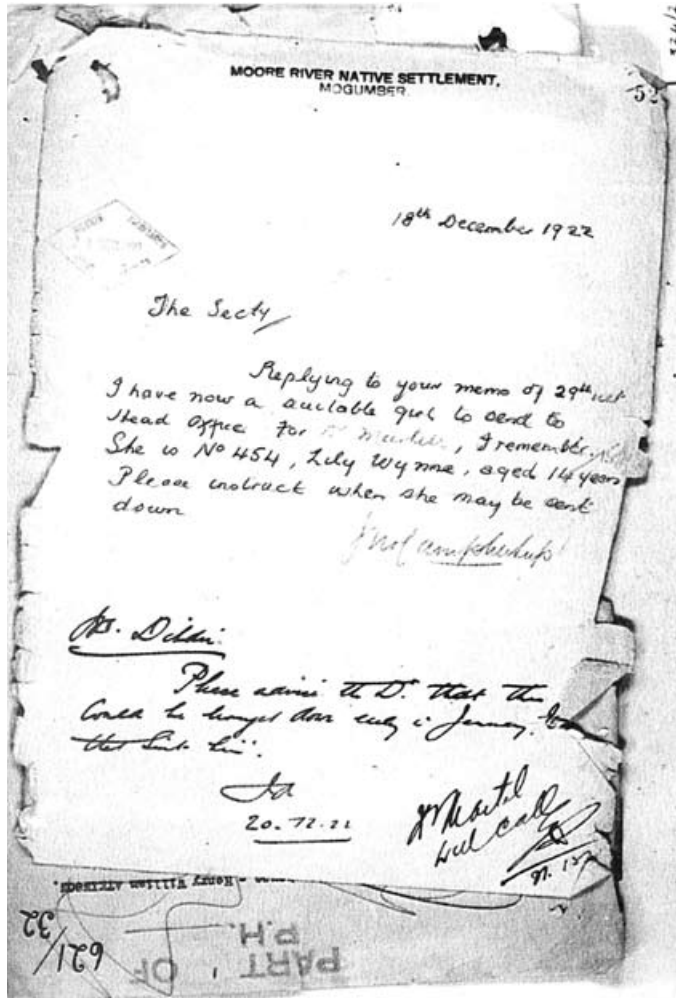 MOORE RIVER NATIVE SETTLEMENT,
MOGUMBER.
52
18th December 1922
The Secty/
Replying to your memo of 29th
I have now a suitable girl to send to
Head Office for Dr , I remember
She is No 454, Lily Wynne, aged 14 years
Please instruct when she may be sent
down
Please advise the Dr. that this
could be brought down early in January.
that suit him.
20.12.22
will call
Henry William Atkinson.
621/32
PART OF
P.H.